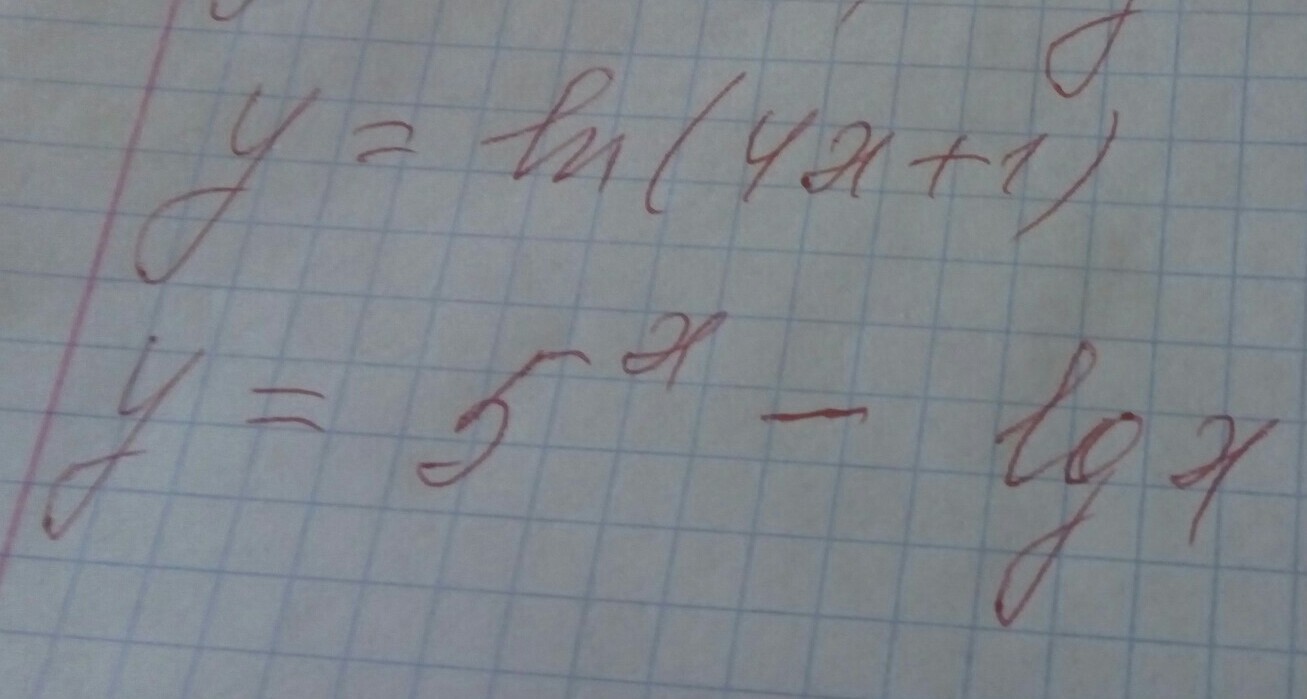 y = ln(4x+1)
y = 5^x - lg x